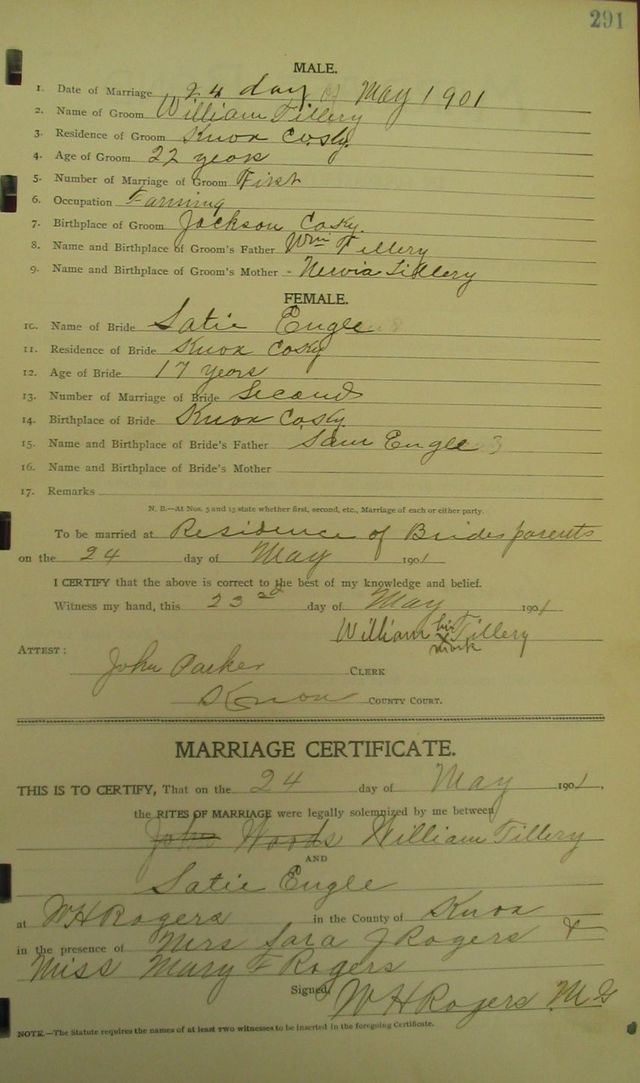 291
MALE.
1. Date of Marriage 24 day of May 1901
2. Name of Groom William Tillery
3. Residence of Groom Knox Co Ky.
4. Age of Groom 22 years
5. Number of Marriage of Groom First
6. Occupation Farming
7. Birthplace of Groom Jackson Co Ky.
8. Name and Birthplace of Groom's Father Wm Tillery
9. Name and Birthplace of Groom's Mother - Tillery
FEMALE.
10. Name of Bride Satie Engle
11. Residence of Bride Knox Co Ky
12. Age of Bride 17 years
13. Number of Marriage of Bride Second
14. Birthplace of Bride Knox Co Ky.
15. Name and Birthplace of Bride's Father Sam Engle
16. Name and Birthplace of Bride's Mother
17. Remarks
N. B.—At Nos. 5 and 13 state whether first, second, etc., Marriage of each or either party.
To be married at Residence of Brides parents
on the 24 day of May 1901
I CERTIFY that the above is correct to the best of my knowledge and belief.
Witness my hand, this 23rd day of May 1901
William his x mark Tillery
ATTEST:
John Parker CLERK
Knox COUNTY COURT.
MARRIAGE CERTIFICATE.
THIS IS TO CERTIFY, That on the 24 day of May 1901.
the RITES OF MARRIAGE were legally solemnized by me between
John Woods William Tillery
AND
Satie Engle
at W H Rogers in the County of Knox
in the presence of Mrs Sara J Rogers &
Miss Mary F Rogers
Signed, W H Rogers M G
NOTE.—The Statute requires the names of at least two witnesses to be inserted in the foregoing Certificate.